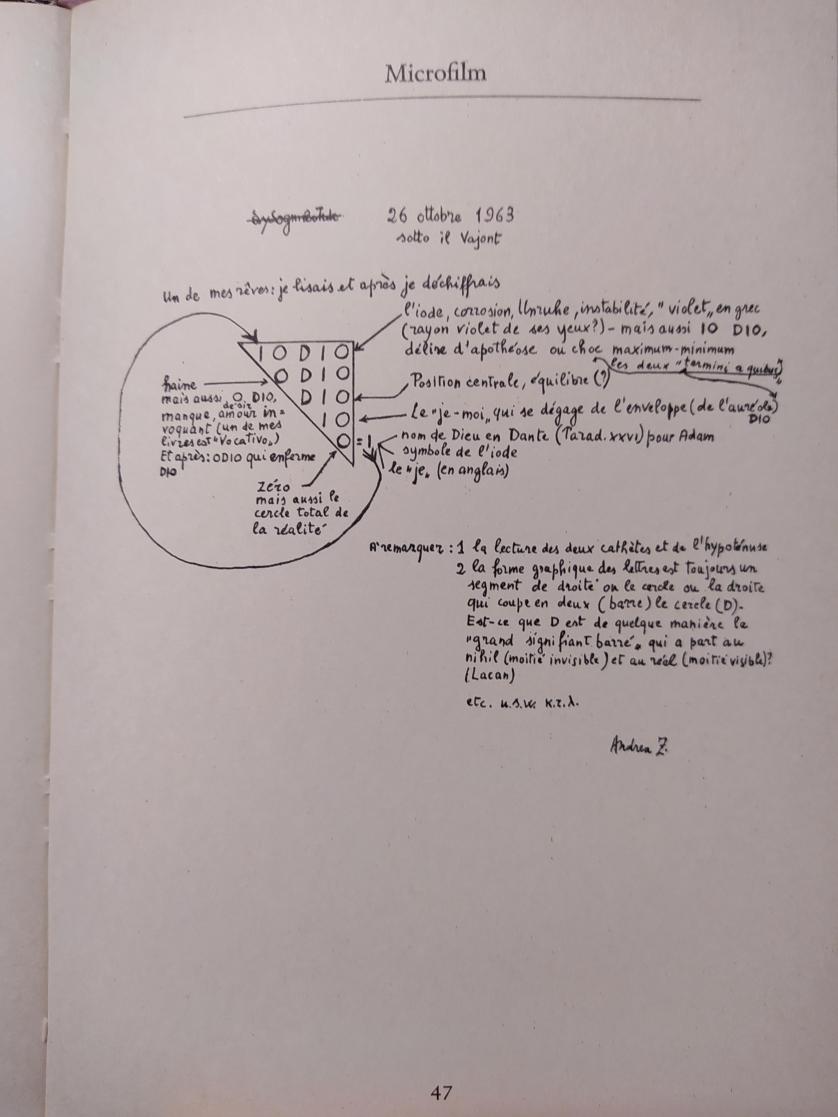 Microfilm
26 ottobre 1963
sotto il Vajont
Un de mes rêves: je lisais et après je déchiffrais
l'iode, corrosion, Unruhe, instabilité, "violet„ en grec
(rayon violet de ses yeux?) - mais aussi IO DIO,
délire d'apothéose ou choc maximum-minimum
les deux "termini a quibus„
I O D I O
O D I O
D I O
I O
O = 1
haine
mais aussi, O DIO,
désir
manque, amour in=
voquant (un de mes
livres est "Vocativo„)
Et après: ODIO qui enferme
DIO
Position centrale, équilibre (?)
Le "je-moi„ qui se dégage de l'enveloppe (de l'auréole)
DIO
nom de Dieu en Dante (Parad. XXVI) pour Adam
symbole de l'iode
le "je„ (en anglais)
zéro
mais aussi le
cercle total de
la réalité
A remarquer: 1 la lecture des deux cathètes et de l'hypoténuse
2 la forme graphique des lettres est toujours un
segment de droite ou le cercle ou la droite
qui coupe en deux (barre) le cercle (D).
Est-ce que D est de quelque manière le
"grand signifiant barré„ qui a part au
nihil (moitié invisible) et au réel (moitié visible)?
(Lacan)
etc. u.s.w. κ.τ.λ.
Andrea Z.
47